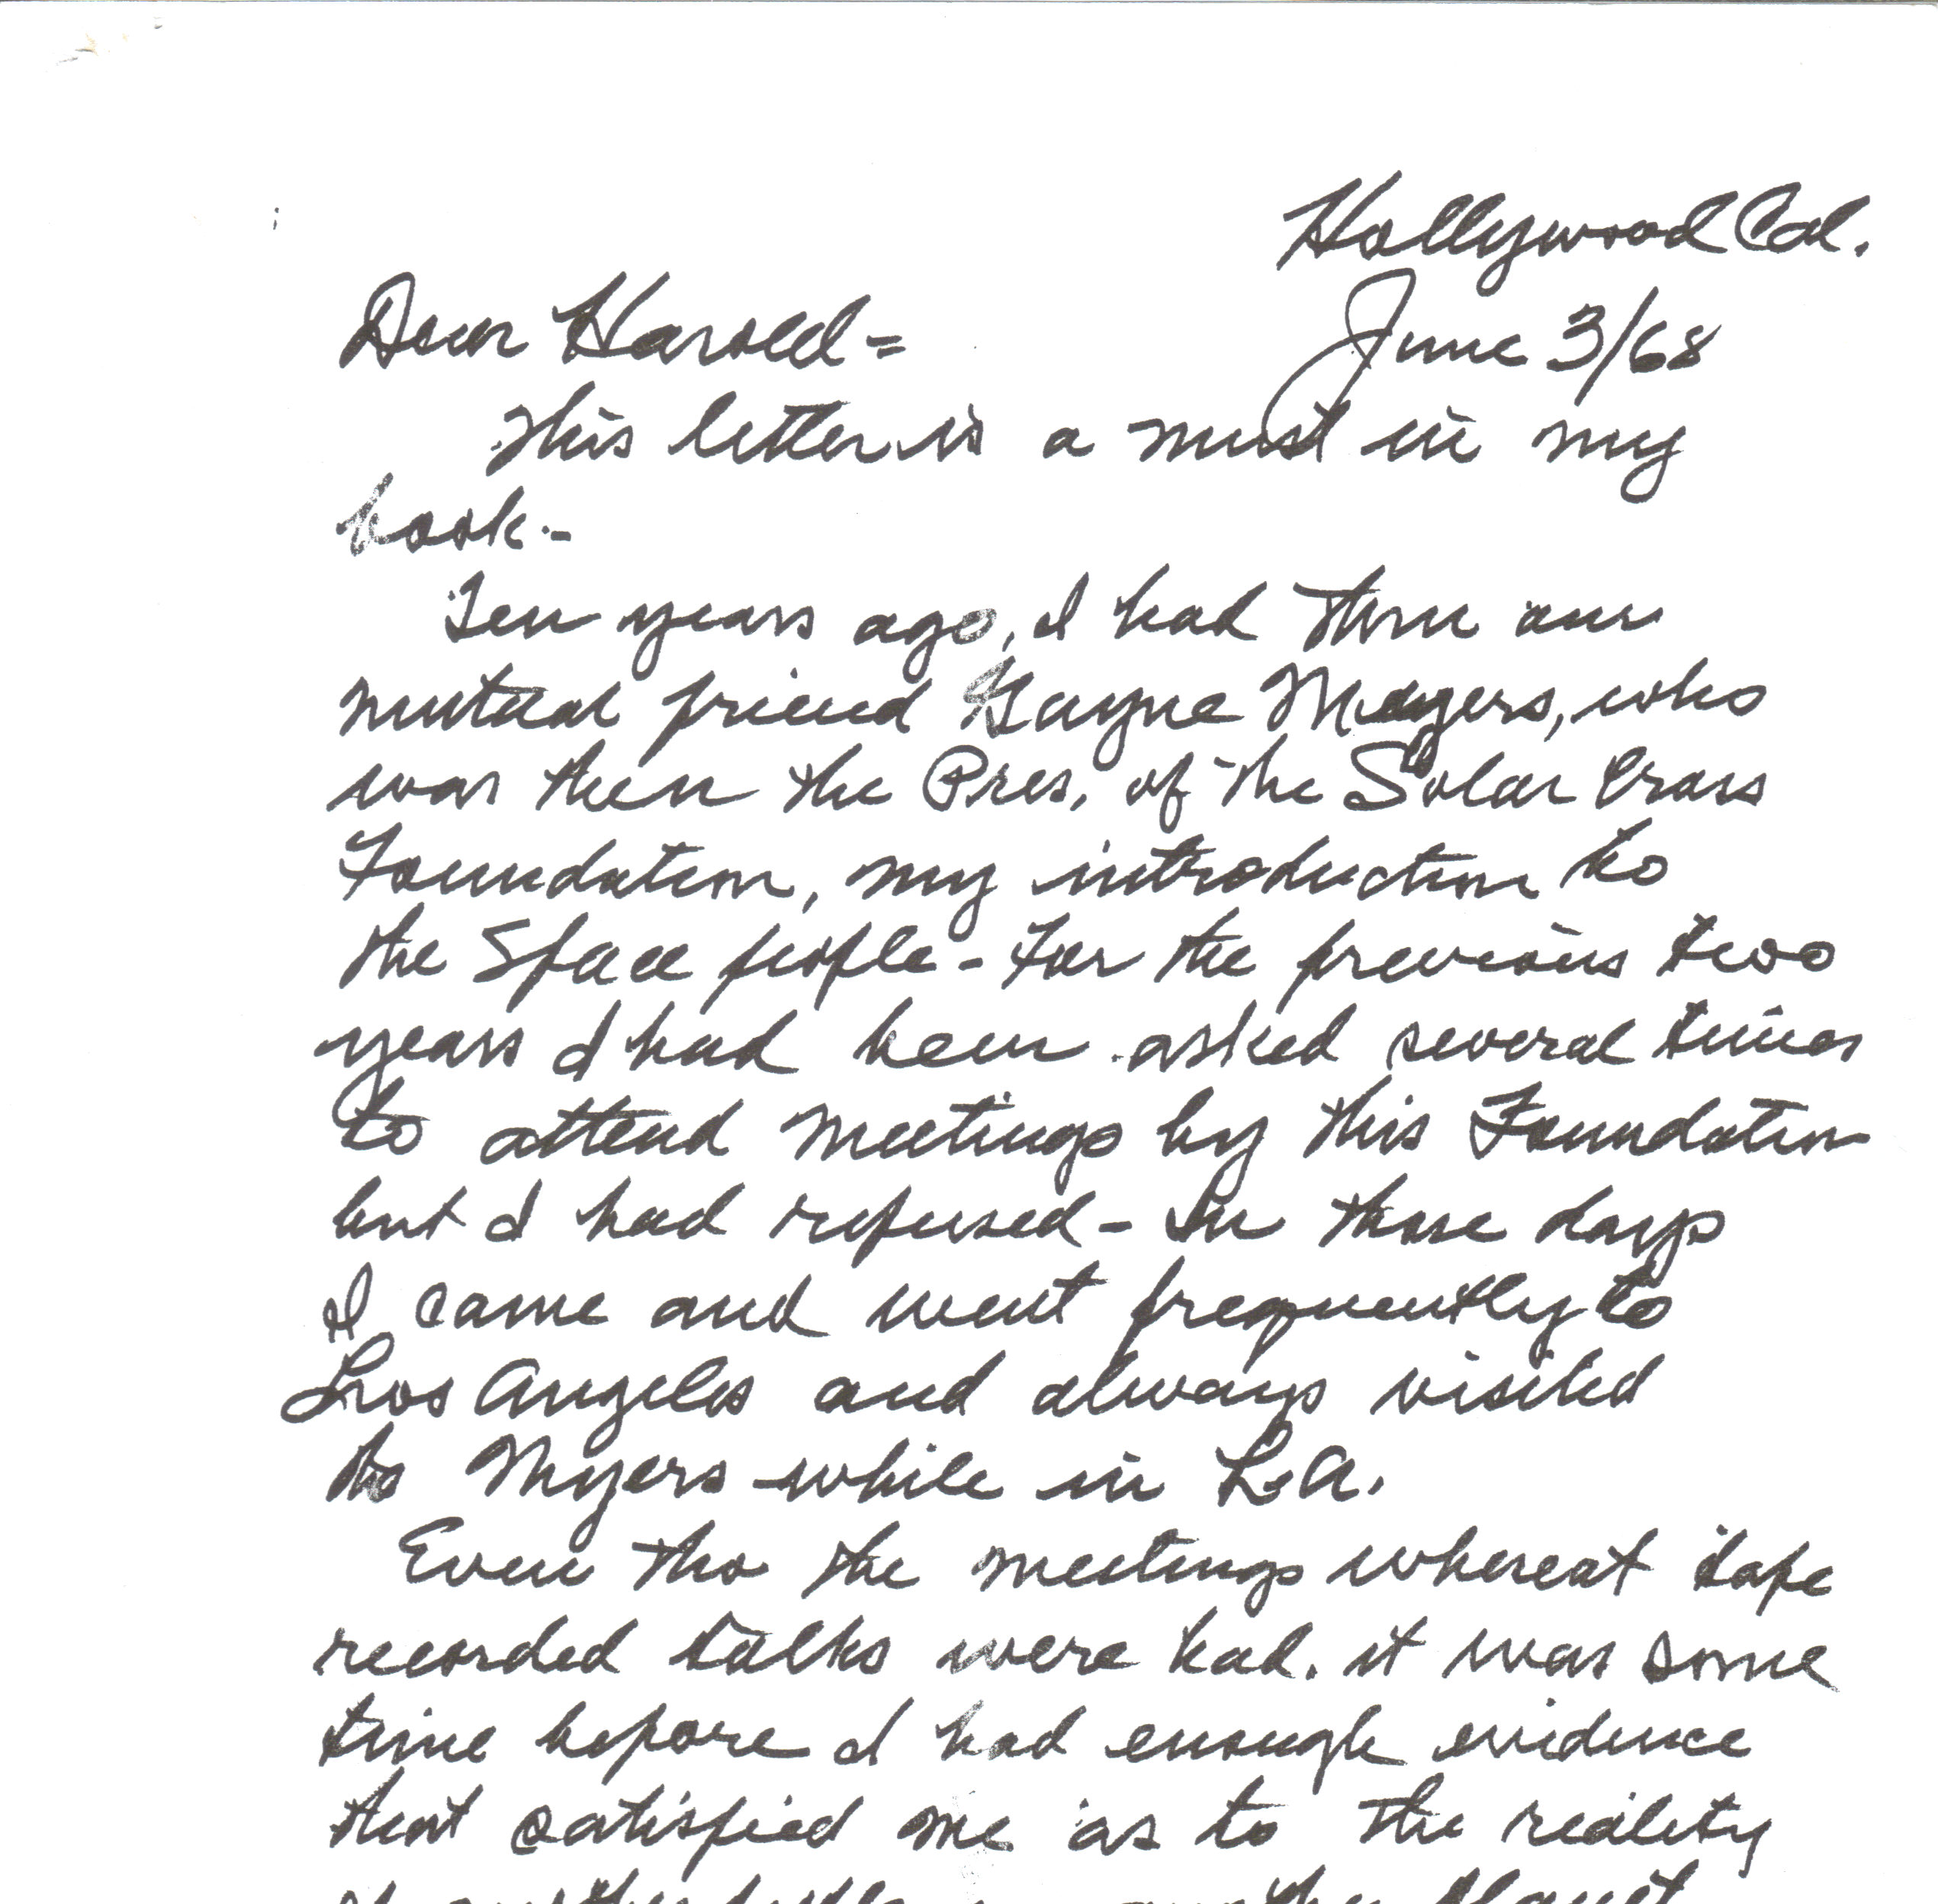 Hollywood Cal.
Dear Harold = June 3/68
This letter is a must in my
book. -
Ten years ago, I had thru our
mutual friend Wayne Meyers, who
was then the Pres. of the Solar Cross
Foundation, my introduction to
the Space people - For the previous two
years I had been asked several times
to attend meetings by this Foundation
but I had refused - In those days
I came and went frequently to
Los Angeles and always visited
the Myers while in L.A.
Even tho the meetings whereat tape
recorded talks were had. it was some
time before I had enough evidence
that satisfied me as to the reality
planet